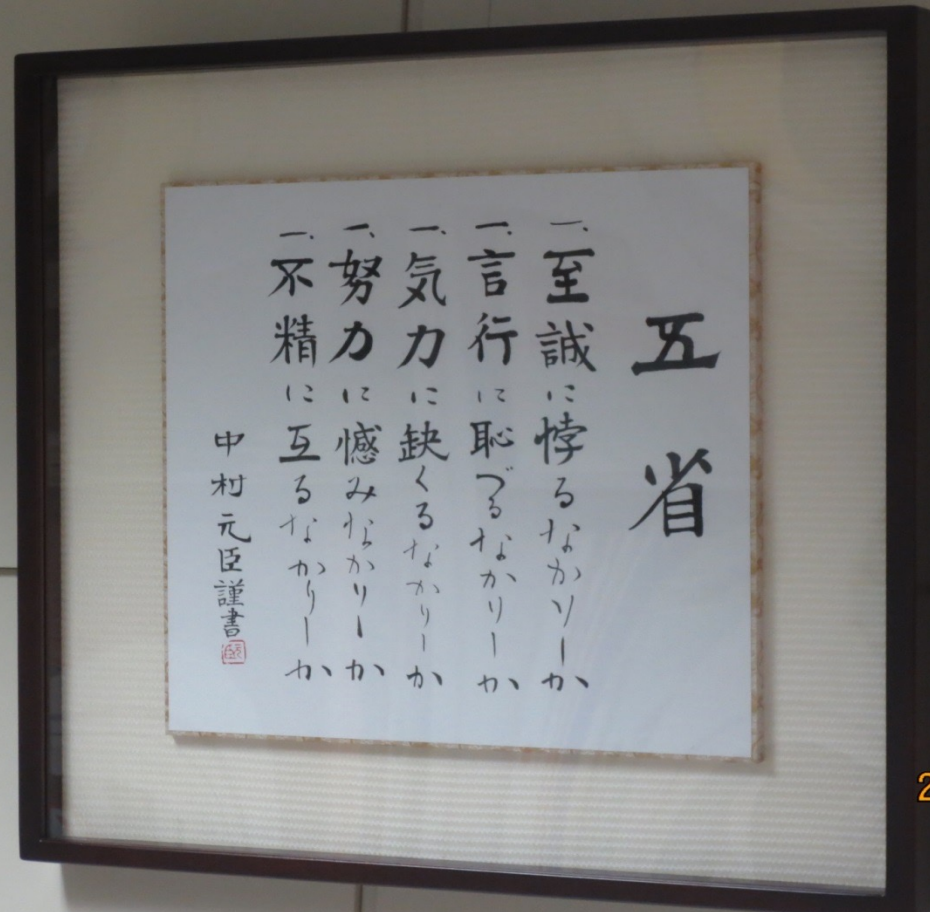 五省
一、至誠に悖るなかりしか
一、言行に恥づるなかりしか
一、気力に缺くるなかりしか
一、努力に憾みなかりしか
一、不精に亙るなかりしか
中村元臣謹書
2